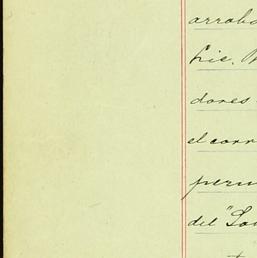 arroba
Lic. 
dores
el corr
perm
del "Lo